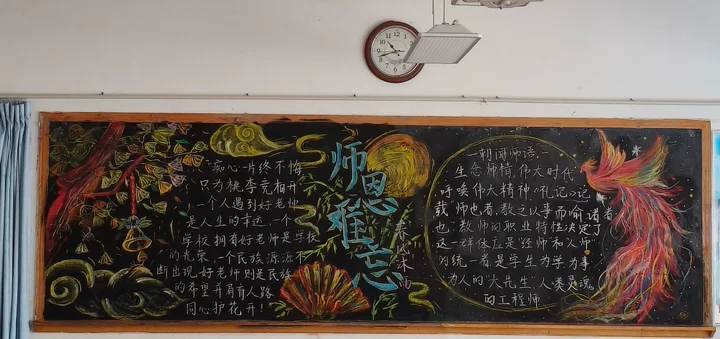 痴心一片终不悔
只为桃李竞相开
一个人遇到好老师
是人生的幸运，一个
学校拥有好老师是学校
的光荣，一个民族源源不
断出现好老师则是民族
的希望并肩有人路
同心护花开！
师恩难忘
一朝闻师语
生念师情，伟大时代
呼唤伟大精神，《礼记》记
载"师也者，教之以事而喻诸者
也"教师的职业特性决定了
这一群体应是"经师和人师"
的统一者是学生为学为事
为人的"大先生"人类灵魂
的工程师